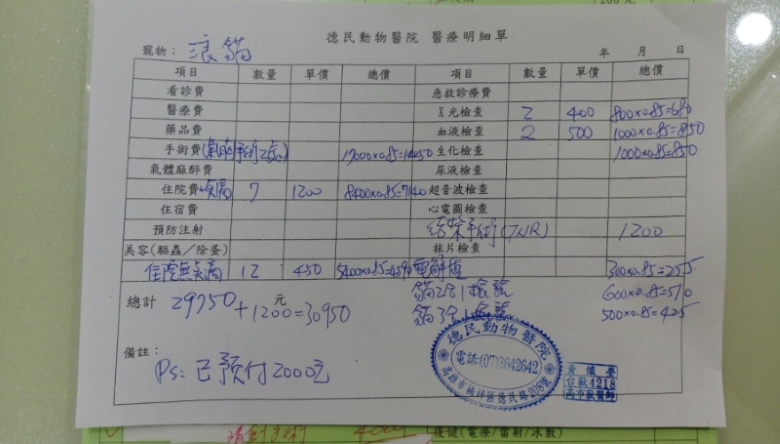 德民動物醫院 醫療明細單
寵物：浪貓 年 月 日
項目 數量 單價 總價 項目 數量 單價 總價
看診費 急救診療費
醫療費 X光檢查 2 400 800×0.85=680
藥品費 血液檢查 2 500 1000×0.85=850
手術費(氣胸手術2處) 17000×0.85=14450 生化檢查 1000×0.85=850
氣體麻醉費 尿液檢查
住院費+點滴 7 1200 8400×0.85=7140 超音波檢查
住宿費 心電圖檢查
預防注射 結紮手術(TNR) 1200
美容(驅蟲/除蚤) 抹片檢查
住院無點滴 12 450 5400×0.85=4590 電解值 300×0.85=255
貓2合1檢驗 600×0.85=510
貓3合1檢驗 500×0.85=425
總計 29750 元 +1200=30950
備註：
Ps: 已預付2000元
德民動物醫院
電話:(07)3642642
高雄市楠梓區德民路208號
台獸4218
高市獸醫師